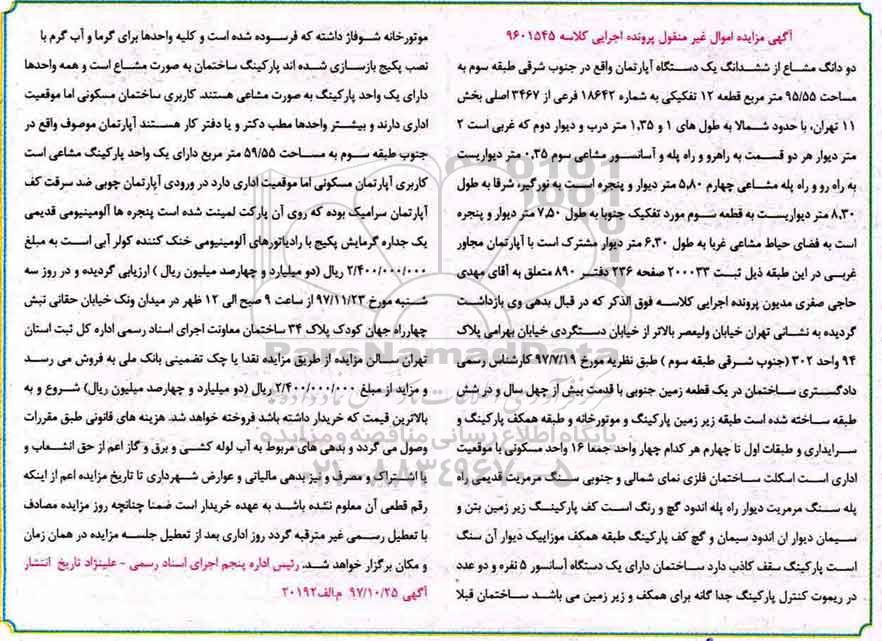 آگهی مزایده اموال غیر منقول پرونده اجرایی کلاسه ۹۶۰۱۵۴۵
دو دانگ مشاع از ششدانگ یک دستگاه آپارتمان واقع در جنوب شرقی طبقه سوم به
مساحت ۹۵/۵۵ متر مربع قطعه ۱۲ تفکیکی به شماره ۱۸۶۴۲ فرعی از ۳۴۶۷ اصلی بخش
۱۱ تهران، با حدود شمالا به طول های ۱ و ۱,۳۵ متر درب و دیوار دوم که غربی است ۲
متر دیوار هر دو قسمت به راهرو و راه پله و آسانسور مشاعی سوم ۰,۳۵ متر دیواریست
به راه رو و راه پله مشاعی چهارم ۵,۸۰ متر دیوار و پنجره است به نورگیر، شرقا به طول
۸,۳۰ متر دیواریست به قطعه سوم مورد تفکیک جنوبا به طول ۷,۵۰ متر دیوار و پنجره
است به فضای حیاط مشاعی غربا به طول ۶,۳۰ متر دیوار مشترک است با آپارتمان مجاور
غربی در این طبقه ذیل ثبت ۲۰۰۰۳۳ صفحه ۲۳۶ دفتر ۸۹۰ متعلق به آقای مهدی
حاجی صفری مدیون پرونده اجرایی کلاسه فوق الذکر که در قبال بدهی وی بازداشت
گردیده به نشانی تهران خیابان ولیعصر بالاتر از خیابان دستگردی خیابان بهرامی پلاک
۹۴ واحد ۳۰۲ (جنوب شرقی طبقه سوم ) طبق نظریه مورخ ۹۷/۷/۱۹ کارشناس رسمی
دادگستری ساختمان در یک قطعه زمین جنوبی با قدمت بیش از چهل سال و در شش
طبقه ساخته شده است طبقه زیر زمین پارکینگ و موتورخانه و طبقه همکف پارکینگ و
سرایداری و طبقات اول تا چهارم هر کدام چهار واحد جمعا ۱۶ واحد مسکونی با موقعیت
اداری است اسکلت ساختمان فلزی نمای شمالی و جنوبی سنگ مرمریت قدیمی راه
پله سنگ مرمریت دیوار راه پله اندود گچ و رنگ است کف پارکینگ زیر زمین بتن و
سیمان دیوار ان اندود سیمان و گچ کف پارکینگ طبقه همکف موزاییک دیوار آن سنگ
است پارکینگ سقف کاذب دارد ساختمان دارای یک دستگاه آسانسور ۵ نفره و دو عدد
در ریموت کنترل پارکینگ جدا گانه برای همکف و زیر زمین می باشد ساختمان قبلا
موتورخانه شوفاژ داشته که فرسوده شده است و کلیه واحدها برای گرما و آب گرم با
نصب پکیج بازسازی شده اند پارکینگ ساختمان به صورت مشاع است و همه واحدها
دارای یک واحد پارکینگ به صورت مشاعی هستند. کاربری ساختمان مسکونی اما موقعیت
اداری دارند و بیشتر واحدها مطب دکتر و یا دفتر کار هستند آپارتمان موصوف واقع در
جنوب طبقه سوم به مساحت ۵۹/۵۵ متر مربع دارای یک واحد پارکینگ مشاعی است
کاربری آپارتمان مسکونی اما موقعیت اداری دارد در ورودی آپارتمان چوبی ضد سرقت کف
آپارتمان سرامیک بوده که روی آن پارکت لمینت شده است پنجره ها آلومینیومی قدیمی
یک جداره گرمایش پکیج با رادیاتورهای آلومینیومی خنک کننده کولر آبی است به مبلغ
۲/۴۰۰/۰۰۰/۰۰۰ ریال (دو میلیارد و چهارصد میلیون ریال ) ارزیابی گردیده و در روز سه
شنبه مورخ ۹۷/۱۱/۲۳ از ساعت ۹ صبح الی ۱۲ ظهر در میدان ونک خیابان حقانی نبش
چهارراه جهان کودک پلاک ۳۴ ساختمان معاونت اجرای اسناد رسمی اداره کل ثبت استان
تهران سالن مزایده از طریق مزایده نقدا یا چک تضمینی بانک ملی به فروش می رسد
و مزاید از مبلغ ۲/۴۰۰/۰۰۰/۰۰۰ ریال (دو میلیارد و چهارصد میلیون ریال) شروع و به
بالاترین قیمت که خریدار داشته باشد فروخته خواهد شد. هزینه های قانونی طبق مقررات
وصول می گردد و بدهی های مربوط به آب لوله کشی و برق و گاز اعم از حق انشعاب و
یا اشتراک و مصرف و نیز بدهی مالیاتی و عوارض شهرداری تا تاریخ مزایده اعم از اینکه
رقم قطعی آن معلوم نشده باشد به عهده خریدار است ضمنا چنانچه روز مزایده مصادف
با تعطیل رسمی غیر مترقبه گردد روز اداری بعد از تعطیل جلسه مزایده در همان زمان
و مکان برگزار خواهد شد. رئیس اداره پنجم اجرای اسناد رسمی - علینژاد تاریخ انتشار
آگهی ۹۷/۱۰/۲۵ م.الف۲۰۱۹۲
ParsNamadData
پایگاه اطلاع رسانی مناقصه و مزایده
۰۲۱-۸۸۳۴۹۶۷۰-۵